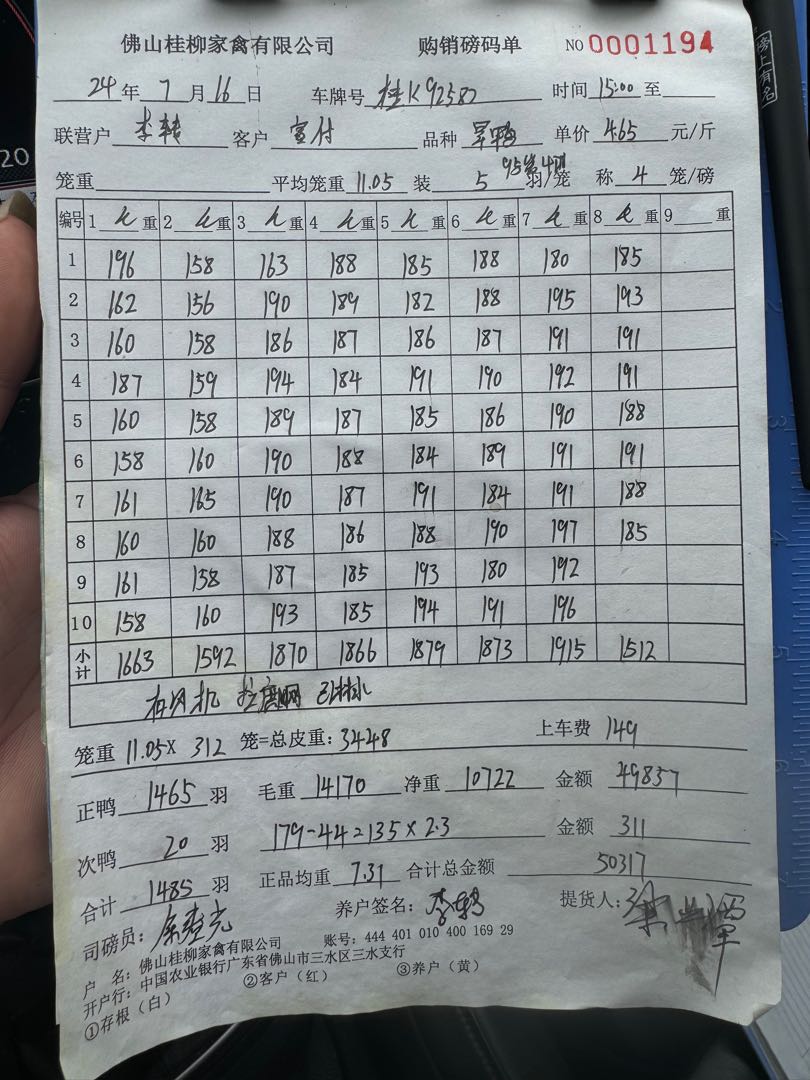 佛山桂柳家禽有限公司 购销磅码单 NO 0001194
24年 7月 16日 车牌号 桂K92587 时间 15:00 至
联营户 李转 客户 宣付 品种 旱鸭 单价 4.65 元/斤
笼重 平均笼重 11.05 装 5 羽/笼 称 4 笼/磅
编号 1 重 2 重 3 重 4 重 5 重 6 重 7 重 8 重 9 重
1 196 158 163 188 185 188 180 185
2 162 156 190 189 182 188 195 193
3 160 158 186 187 186 187 191 191
4 187 159 194 184 191 190 192 191
5 160 158 189 187 185 186 190 188
6 158 160 190 188 184 189 191 191
7 161 165 190 187 191 184 191 188
8 160 160 188 186 188 190 197 185
9 161 158 187 185 193 180 192
10 158 160 193 185 194 191 196
小计 1663 1592 1870 1866 1879 1873 1915 1512
笼重 11.05X 312 笼=总皮重: 3448 上车费 149
正鸭 1465 羽 毛重 14170 净重 10722 金额 49857
次鸭 20 羽 179-44=135×2.3 金额 311
合计 1485 羽 正品均重 7.31 合计总金额 50317
司磅员: 养户签名: 李转 提货人:
户 名: 佛山桂柳家禽有限公司 账号: 444 401 010 400 169 29
开户行: 中国农业银行广东省佛山市三水区三水支行
①存根(白) ②客户(红) ③养户(黄)
榜上有名
20